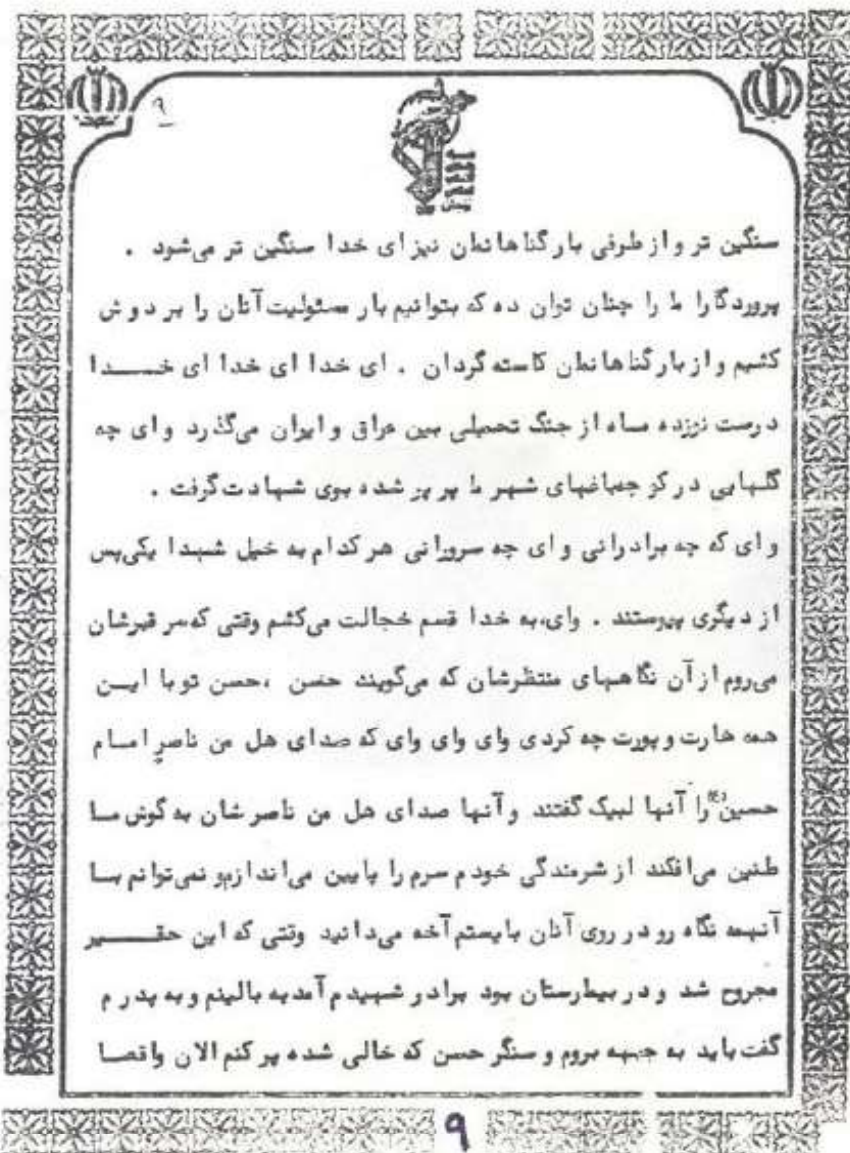 ۹
سنگین تر و از طرفی بار گناهانمان نیز ای خدا سنگین تر می‌شود .
پروردگارا ما را چنان توان ده که بتوانیم بار مسئولیت آنان را بر دوش
کشیم و از بار گناهانمان کاسته گردان . ای خدا ای خدا ای خدا
درست نوزده ماه از جنگ تحمیلی بین عراق و ایران می‌گذرد وای چه
گلهایی در کوچه‌باغهای شهر ما پر پر شده بوی شهادت گرفت .
وای که چه برادرانی وای چه سرورانی هر کدام به خیل شهدا یکی پس
از دیگری پیوستند . وای، به خدا قسم خجالت می‌کشم وقتی که سر قبرشان
می‌روم از آن نگاههای منتظرشان که می‌گویند حسن ، حسن تو با این
همه هارت و پورت چه کردی وای وای وای که صدای هل من ناصرٍ امام
حسین (ع) را آنها لبیک گفتند و آنها صدای هل من ناصرشان به گوش ما
طنین می‌افکند از شرمندگی خودم سرم را پایین می‌اندازم و نمی‌توانم با
آنهمه نگاه رو در روی آنان بایستم آخه می‌دانید وقتی که این حقیر
مجروح شد و در بیمارستان بود برادر شهیدم آمد به بالینم و به پدرم
گفت باید به جبهه بروم و سنگر حسن که خالی شده پر کنم الان واقعا
۹